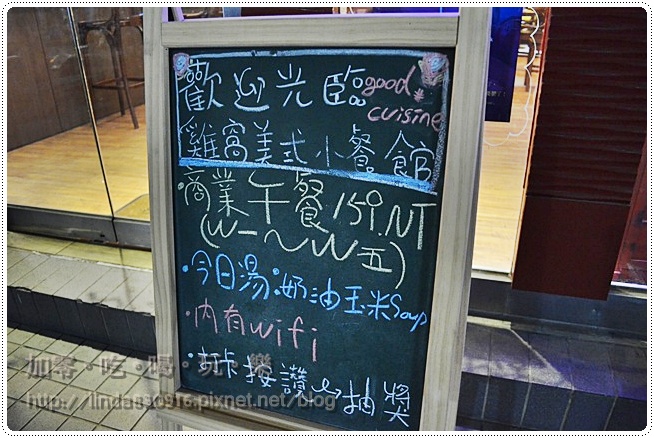 歡迎光臨good
cuisine
雞窩美式小餐館
·商業午餐159.NT
(W一～W五)
·今日湯:奶油玉米Soup
·內有wifi
·打卡按讚→抽獎
加零·吃·喝·玩·樂
http://linda930916.pixnet.net/blog